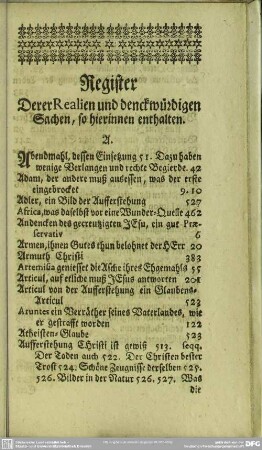 Register
Derer Realien und denckwürdigen
Sachen, so hierinnen enthalten.
A.
Abendmahl, dessen Einsetzung 51. Dazu haben
wenige Verlangen und rechte Begierde. 42
Adam, der andere muß ausessen, was der erste
eingebrocket 9. 10
Adler, ein Bild der Aufferstehung 527
Africa, was daselbst vor eine Wunder-Quelle 462
Andencken des gecreutzigten JEsu, ein gut Præ-
servativ 6
Armen, ihnen Gutes thun belohnet der HErr 20
Armuth Christi 383
Artemisia geniesset die Asche ihres Ehgemahls 55
Articul, auf etliche muß JEsus antworten 201
Articul von der Aufferstehung ein Glaubens-
Articul 523
Aruntes ein Verräther seines Vaterlandes, wie
er gestrafft worden 122
Atheisten-Glaube 523
Aufferstehung CHristi ist gewiß 513. seqq.
Der Toden auch 522. Der Christen bester
Trost 524. Schöne Zeugnisse derselben 525.
526. Bilder in der Natur 526. 527. Was
die